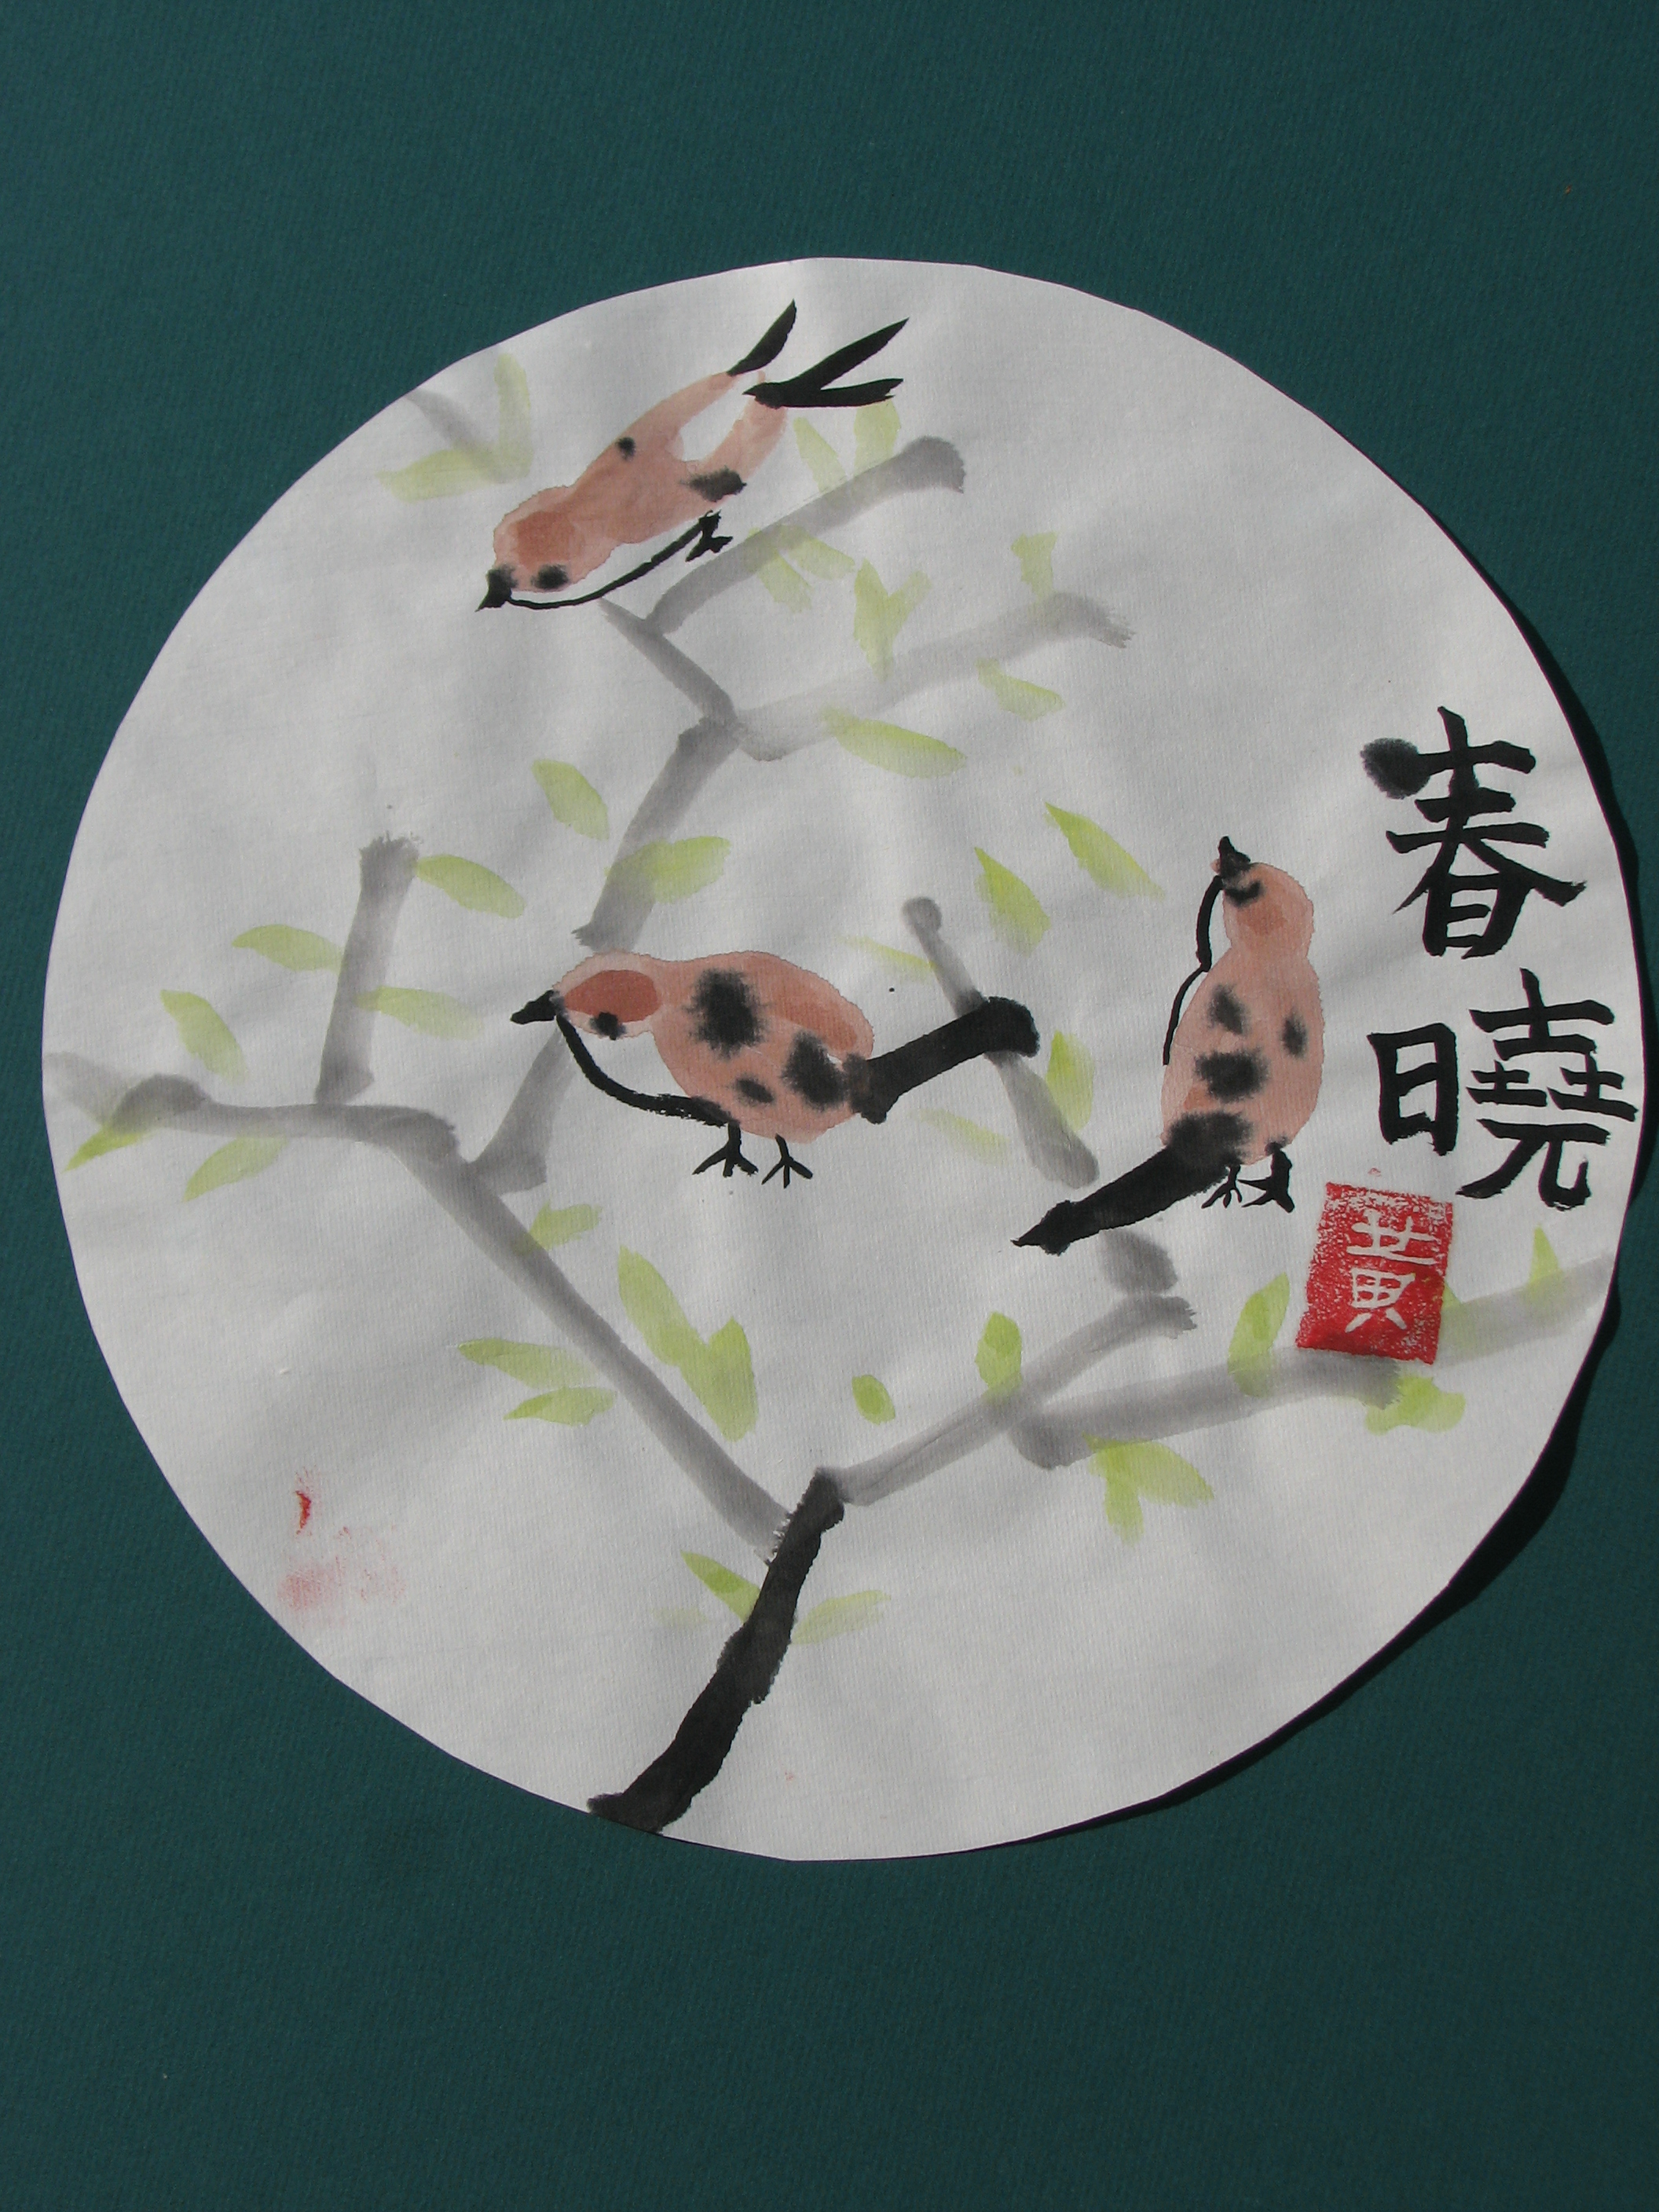 春曉
黃